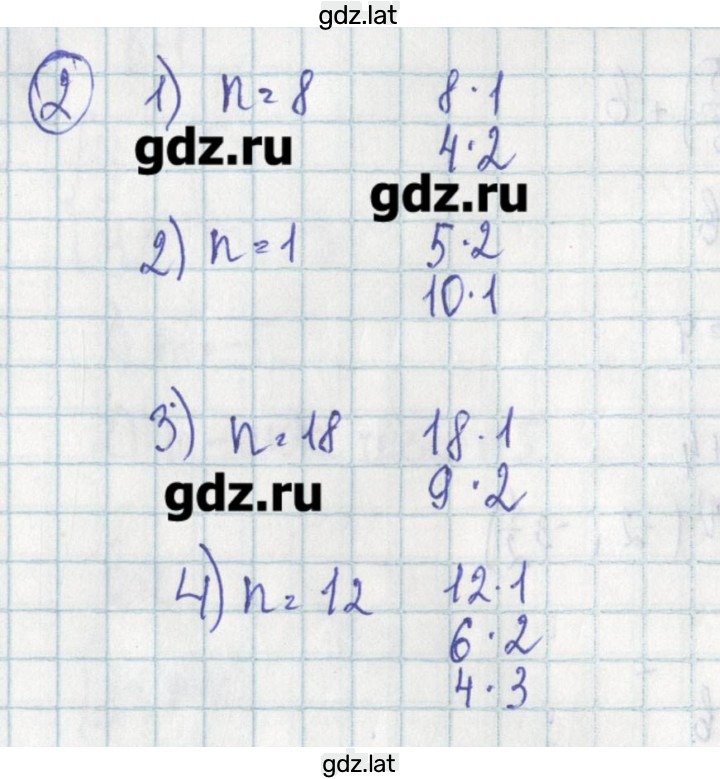 gdz.lat
2 1) n = 8 8 · 1
4 · 2
gdz.ru
gdz.ru
2) n = 1 5 · 2
10 · 1
3) n = 18 18 · 1
9 · 2
gdz.ru
4) n = 12 12 · 1
6 · 2
4 · 3
gdz.lat